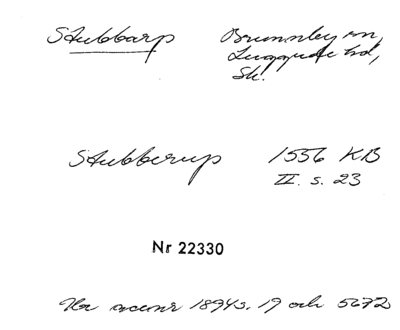 Stubbarp Brunnby sn,
Luggude hd,
Sk.
Stubberup 1556 KB
II. s. 23
Nr 22330
18943. 19 och 5672